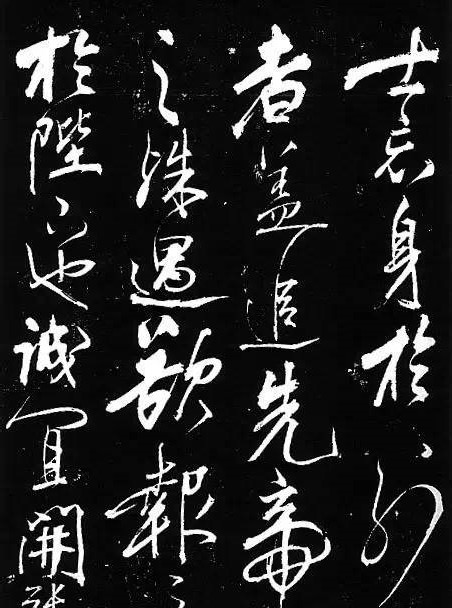 士忘身於外
者盖追先帝
之殊遇欲報之
於陛下也誠宜開